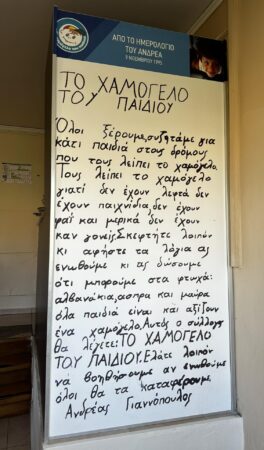 ΑΠΟ ΤΟ ΗΜΕΡΟΛΟΓΙΟ
ΤΟΥ ΑΝΔΡΕΑ
9 ΝΟΕΜΒΡΙΟΥ 1995
ΤΟ ΧΑΜΟΓΕΛΟ
ΤΟΥ ΠΑΙΔΙΟΥ
Όλοι ξέρουμε,συζητάμε για
κάτι παιδιά στους δρόμους
που τους λείπει το χαμόγελο.
Τους λείπει το χαμόγελο
γιατί δεν έχουν λεφτά δεν
έχουν παιχνίδια,δεν έχουν
φαΐ και μερικά δεν έχουν
καν γονείς.Σκεφτήτε λοιπόν
κι αφήστε τα λόγια ας
ενωθούμε κι ας δώσουμε
ότι μπορούμε στα φτωχά:
αλβανάκια,ασπρα και μαύρα
όλα παιδιά είναι και αξίζουν
ένα χαμόγελο.Αυτός ο σύλλογος
θα λέγετε:ΤΟ ΧΑΜΟΓΕΛΟ
ΤΟΥ ΠΑΙΔΙΟΥ.Ελάτε λοιπόν
νά βοηθήσουμε αν ενωθούμε
όλοι θα τα καταφέρουμε
Ανδρέας Γιαννόπουλος